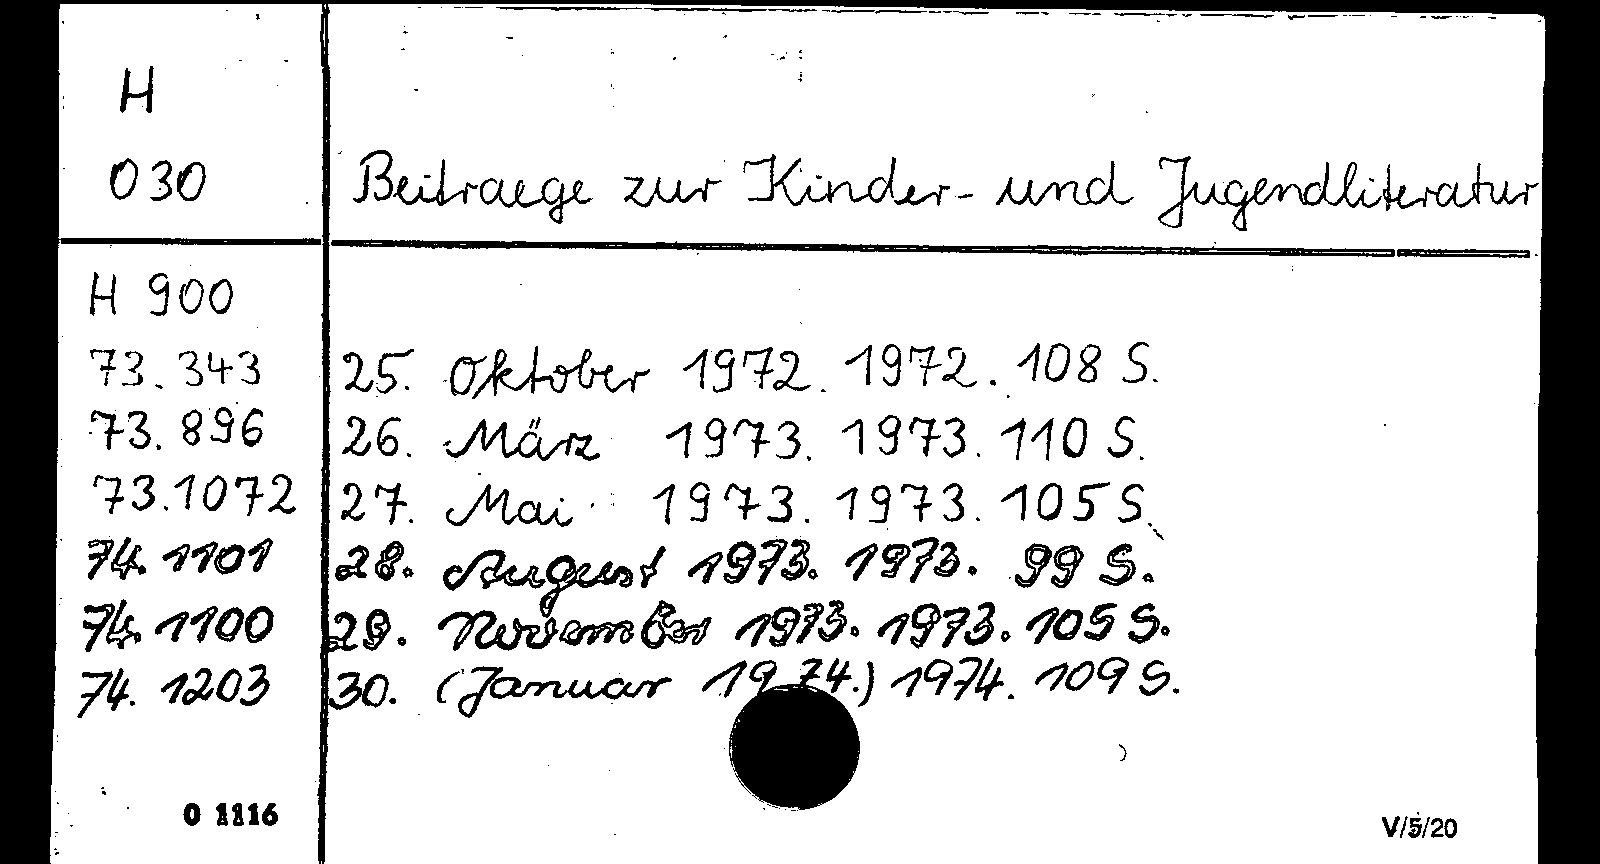 H
030 Beitraege zur Kinder- und Jugendliteratur
H 900
73.343 25. Oktober 1972. 1972. 108 S.
73.896 26. März 1973. 1973. 110 S.
73.1072 27. Mai 1973. 1973. 105 S.
74.1101 28. August 1973. 1973. 99 S.
74.1100 29. November 1973. 1973. 105 S.
74.1203 30. (Januar 1974.) 1974. 109 S.
0 1116 V/5/20